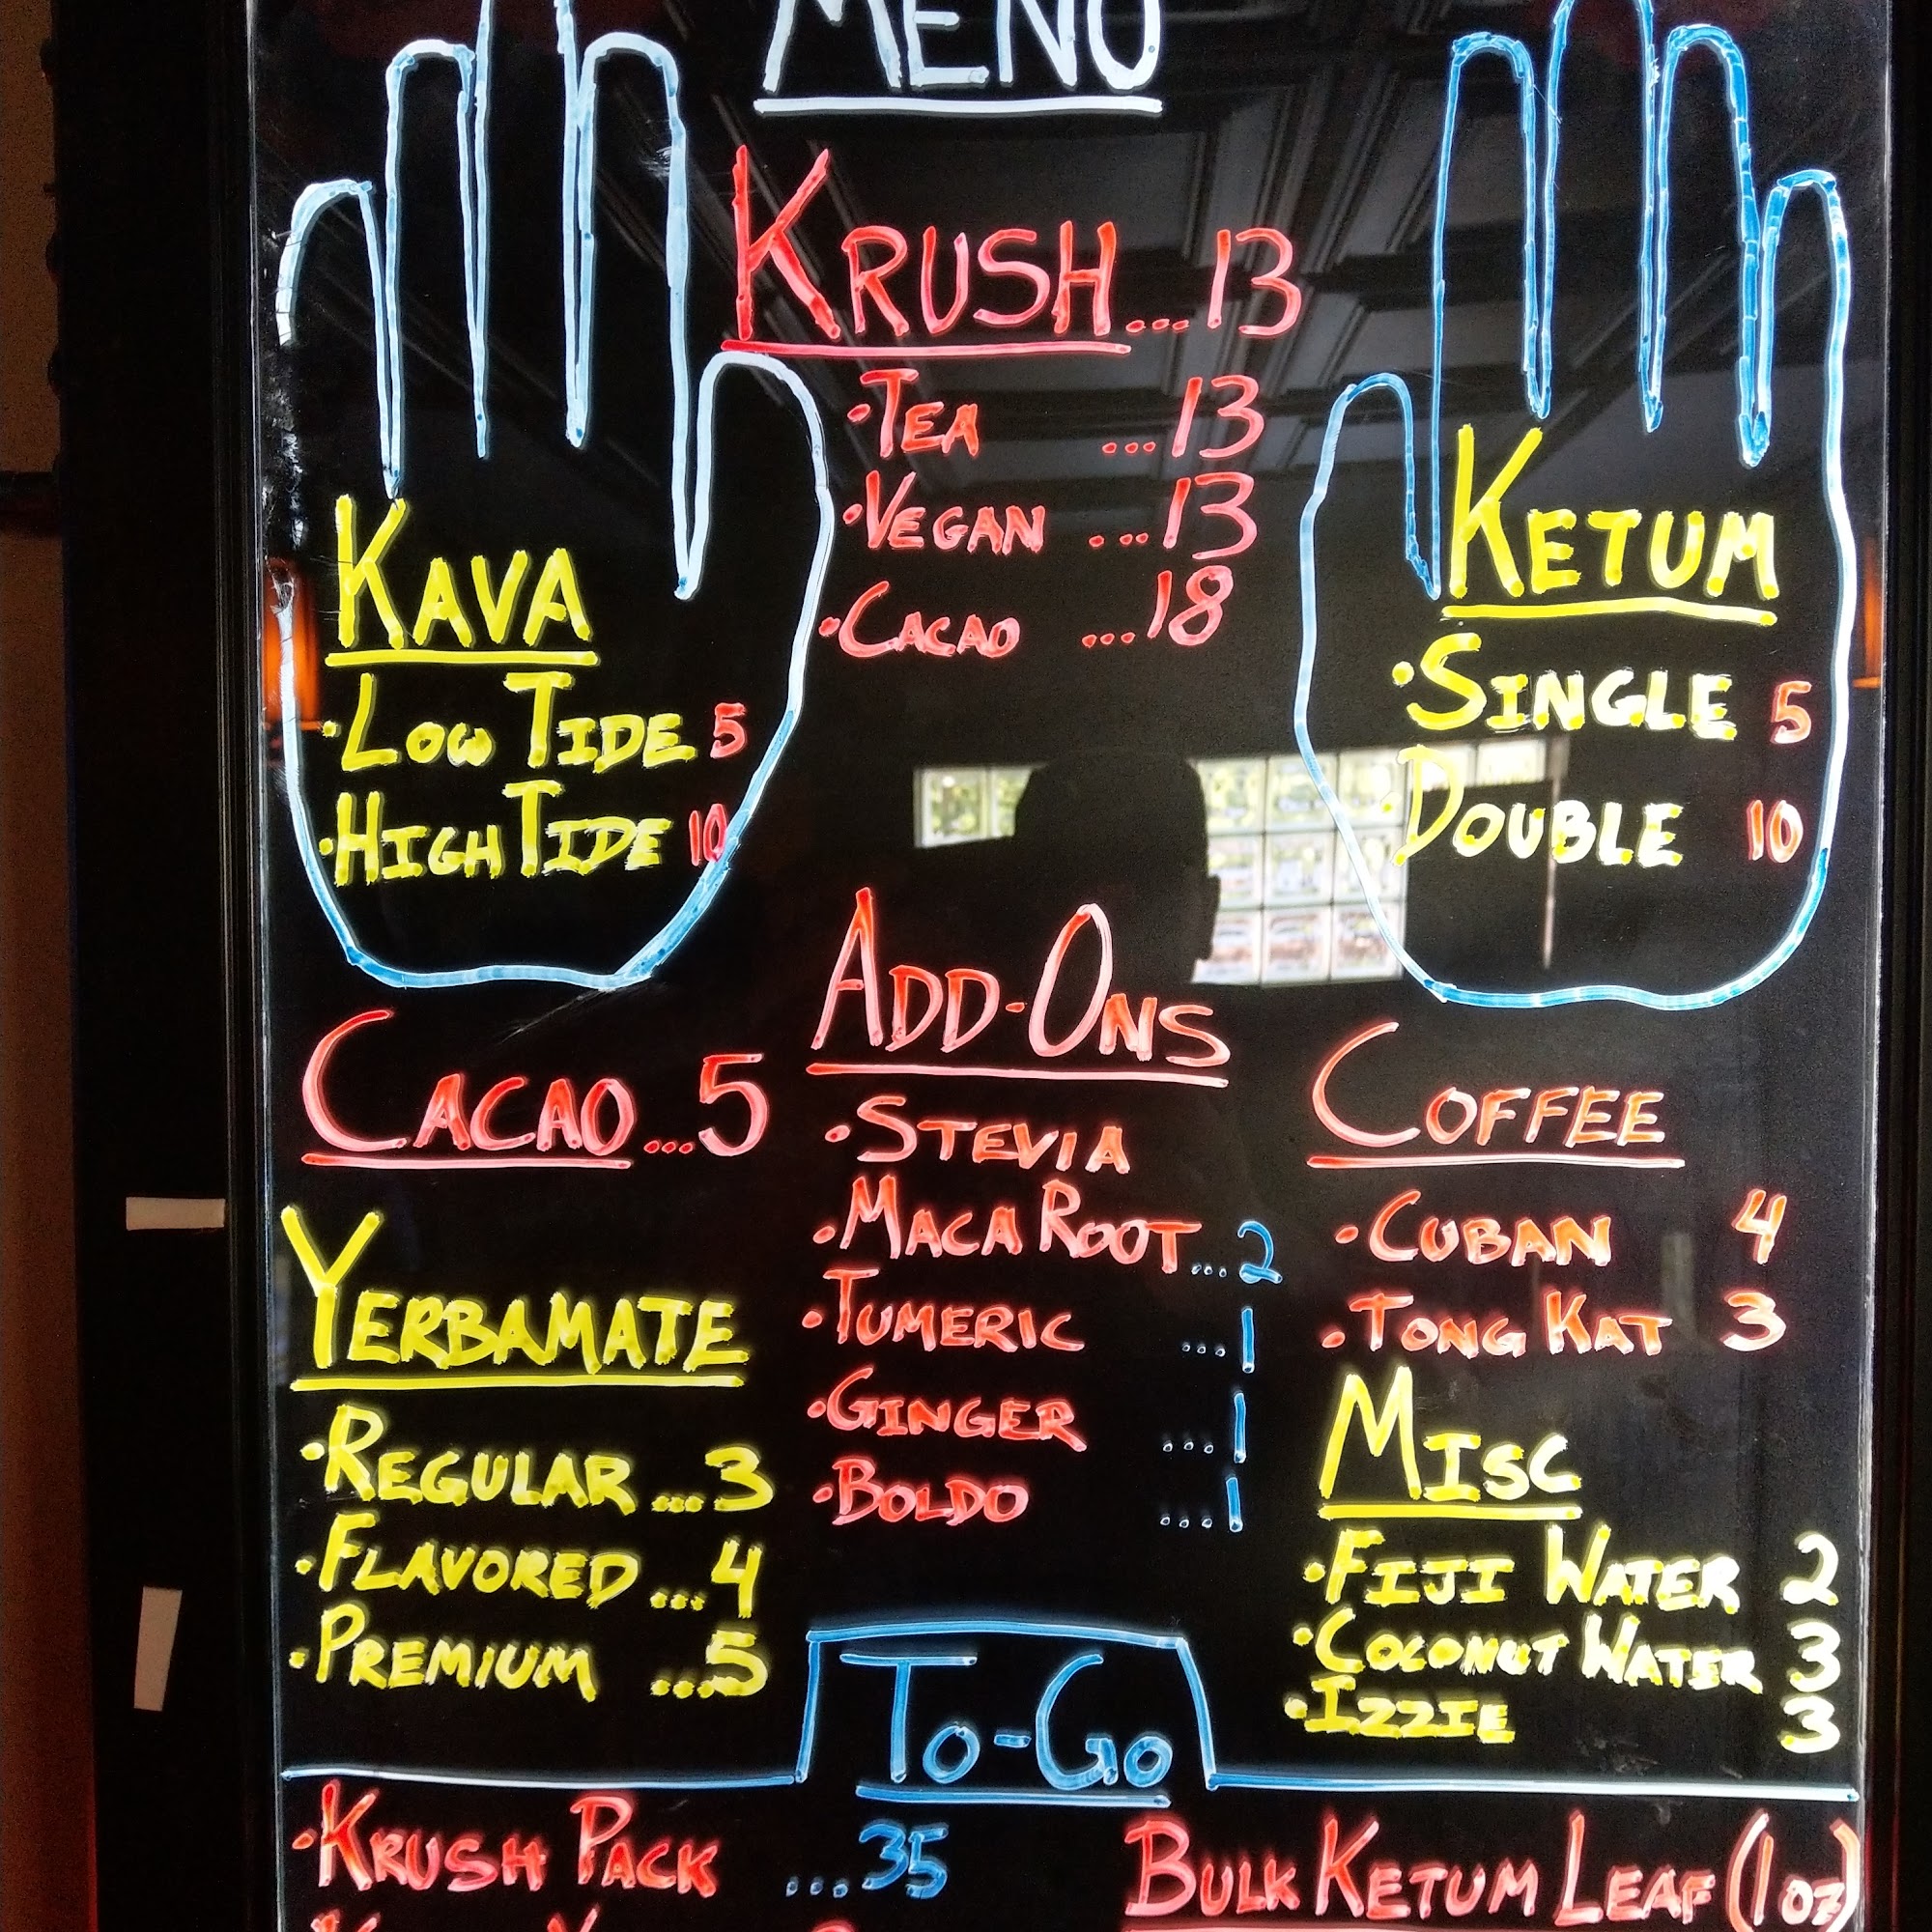 MENU
KRUSH...13
•TEA ...13
•VEGAN ...13
•CACAO ...18
KAVA
•LOW TIDE 5
•HIGH TIDE 10
KETUM
•SINGLE 5
DOUBLE 10
CACAO...5
YERBAMATE
•REGULAR...3
•FLAVORED...4
•PREMIUM ...5
ADD-ONS
•STEVIA
•MACA ROOT...2
•TUMERIC ...1
•GINGER ...1
•BOLDO ...1
COFFEE
•CUBAN 4
•TONG KAT 3
MISC
•FIJI WATER 2
•COCONUT WATER 3
•IZZIE 3
TO-GO
•KRUSH PACK ...35
BULK KETUM LEAF (1oz)